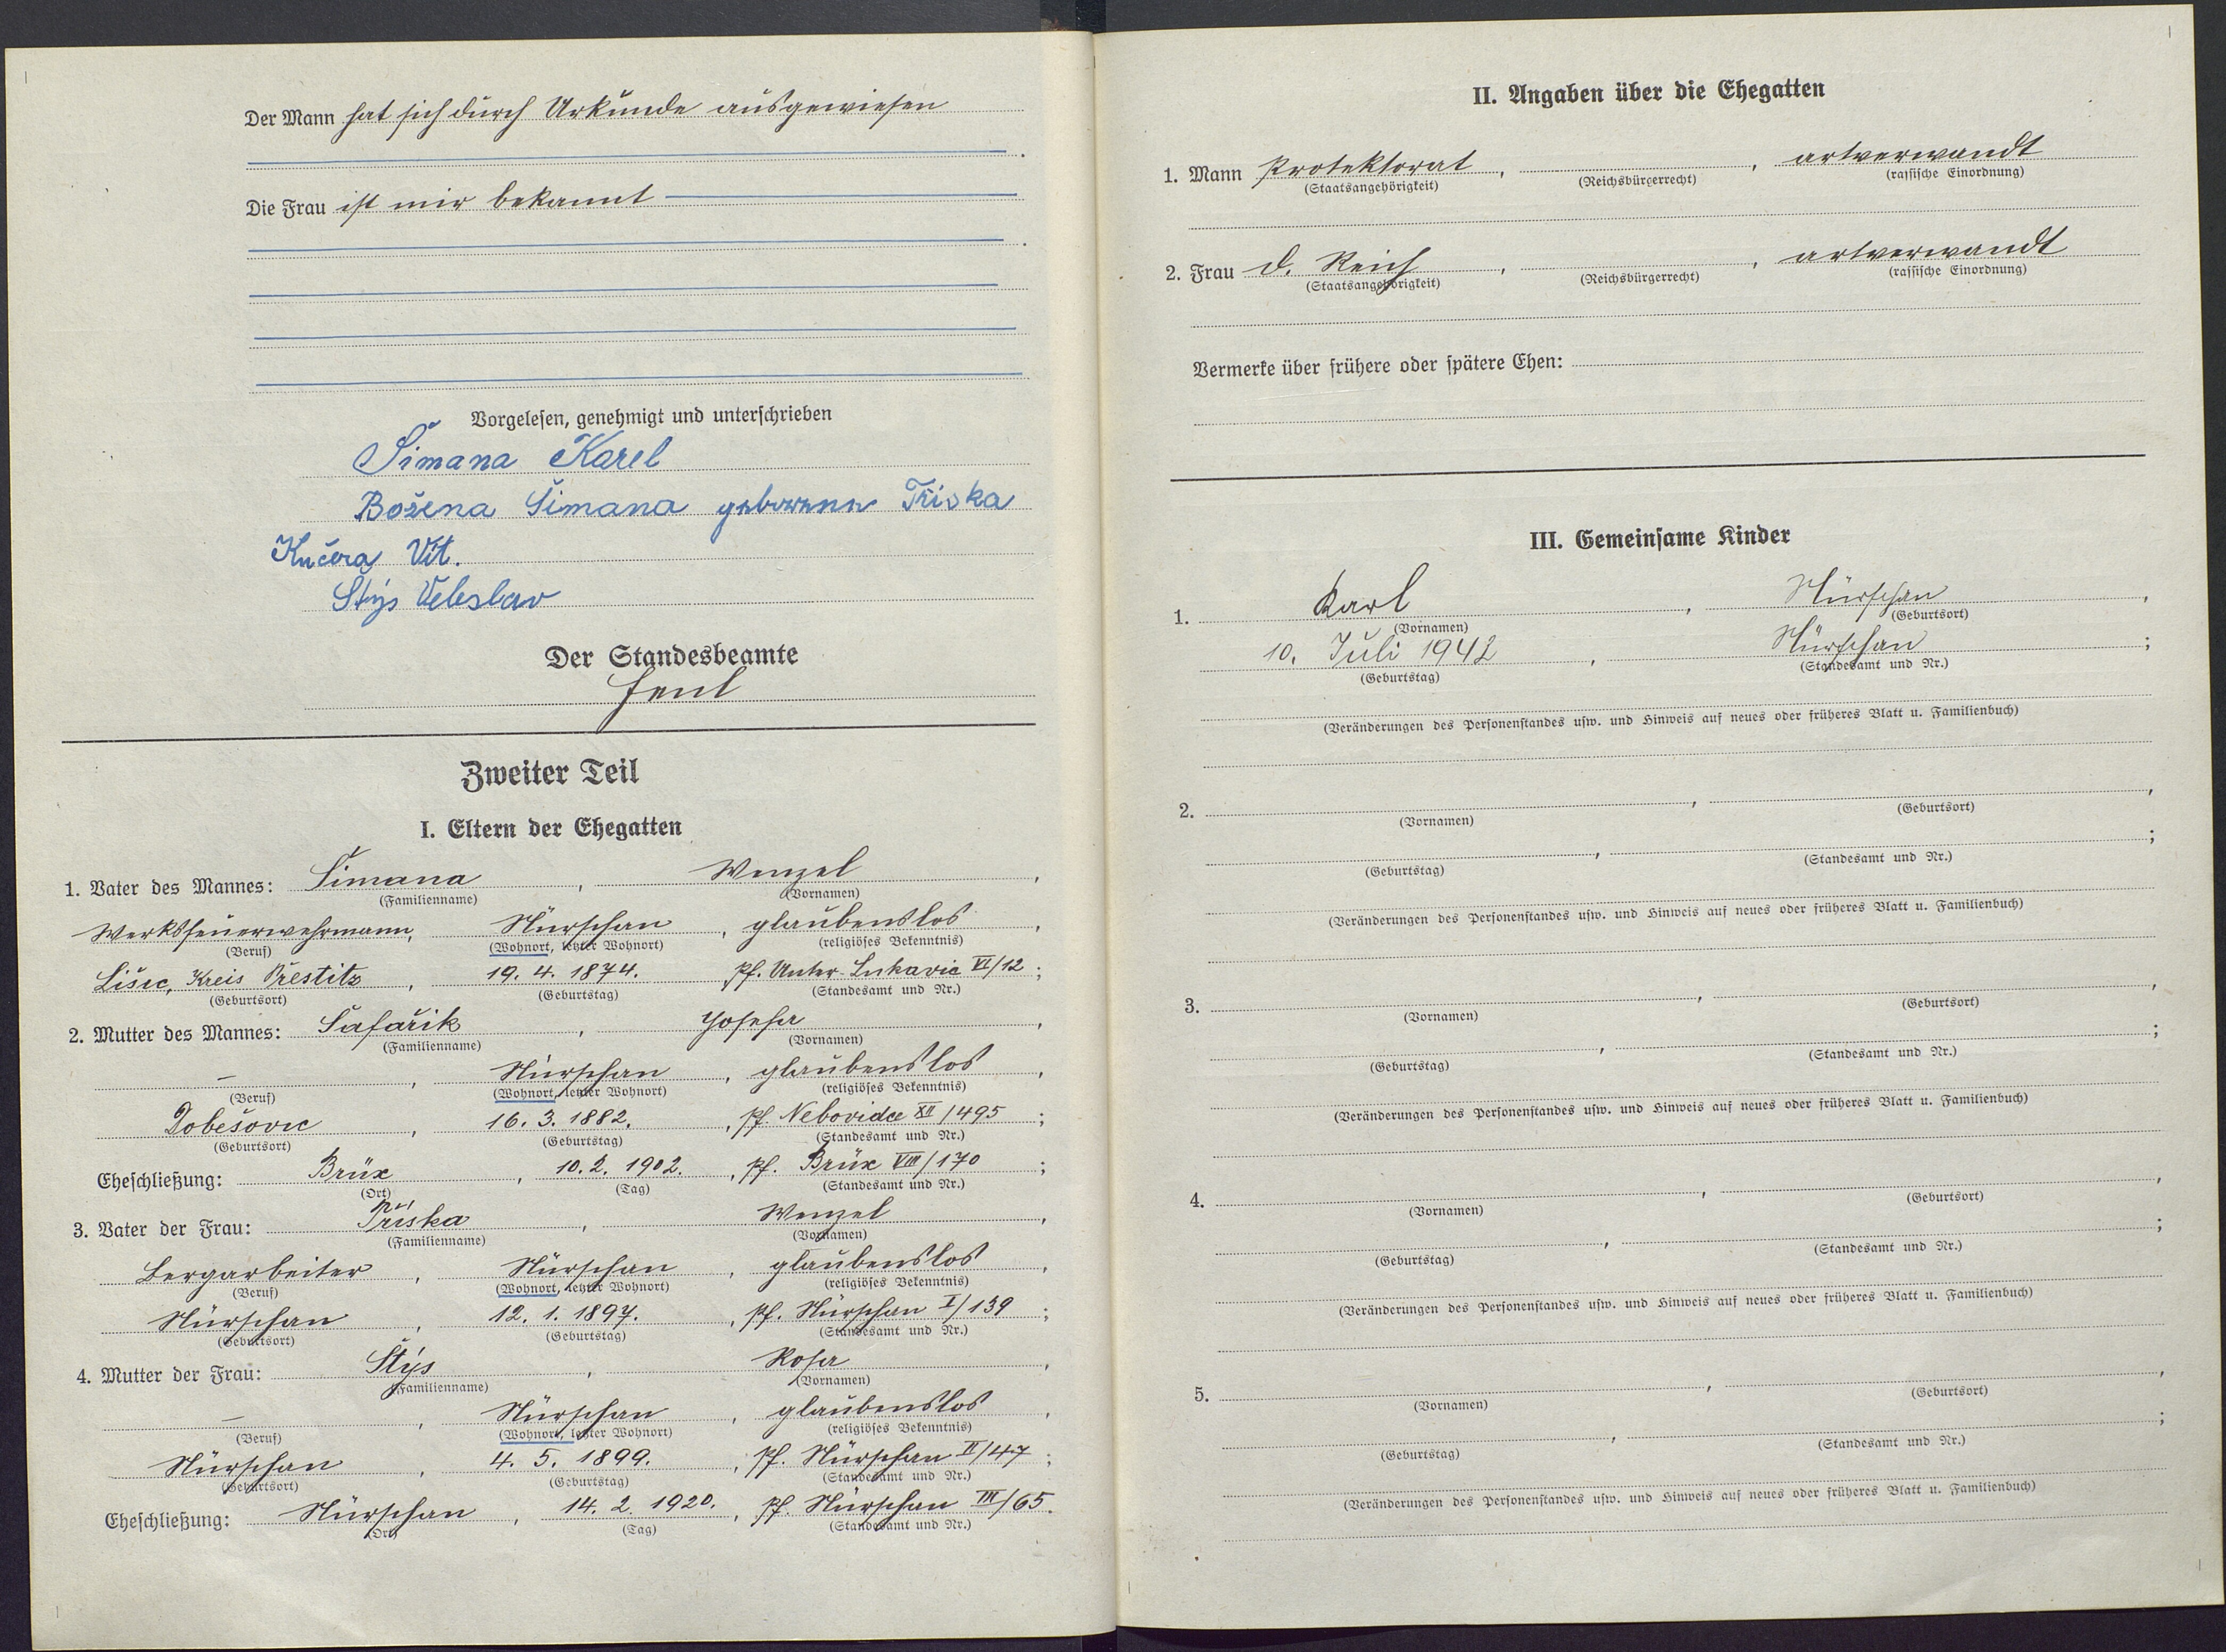 Der Mann hat sich durch Urkunde ausgewiesen
.
Die Frau ist mir bekannt
.
Vorgelesen, genehmigt und unterschrieben
Šimana Karel
Božena Šimana geborene Tříska
Kučera Vít.
Stýs Veleslav
Der Standesbeamte
Zweiter Teil
I. Eltern der Ehegatten
1. Vater des Mannes: Šimana, Wenzel,
(Familienname) (Vornamen)
Werksfeuerwehrmann, Nürschan, glaubenslos,
(Beruf) (Wohnort, letzter Wohnort) (religiöses Bekenntnis)
Lišic, Kreis Přestitz, 19. 4. 1874. Pf. Unter-Lukavic VI/12;
(Geburtsort) (Geburtstag) (Standesamt und Nr.)
2. Mutter des Mannes: Šafařik, Josefa,
(Familienname) (Vornamen)
–, Nürschan, glaubenslos,
(Beruf) (Wohnort, letzter Wohnort) (religiöses Bekenntnis)
Dobešovic, 16. 3. 1882., Pf. Nebovidce XII/495;
(Geburtsort) (Geburtstag) (Standesamt und Nr.)
Eheschließung: Brüx, 10. 2. 1902., Pf. Brüx VIII/170;
(Ort) (Tag) (Standesamt und Nr.)
3. Vater der Frau: Tříska, Wenzel,
(Familienname) (Vornamen)
Bergarbeiter, Nürschan, glaubenslos,
(Beruf) (Wohnort, letzter Wohnort) (religiöses Bekenntnis)
Nürschan, 12. 1. 1897., Pf. Nürschan I/139;
(Geburtsort) (Geburtstag) (Standesamt und Nr.)
4. Mutter der Frau: Stýs, Rosa,
(Familienname) (Vornamen)
–, Nürschan, glaubenslos,
(Beruf) (Wohnort, letzter Wohnort) (religiöses Bekenntnis)
Nürschan, 4. 5. 1899., Pf. Nürschan II/47;
(Geburtsort) (Geburtstag) (Standesamt und Nr.)
Eheschließung: Nürschan, 14. 2. 1920., Pf. Nürschan III/65.
(Ort) (Tag) (Standesamt und Nr.)
II. Angaben über die Ehegatten
1. Mann Protektorat, , artverwandt
(Staatsangehörigkeit) (Reichsbürgerrecht) (rassische Einordnung)
2. Frau D. Reich, , artverwandt
(Staatsangehörigkeit) (Reichsbürgerrecht) (rassische Einordnung)
Vermerke über frühere oder spätere Ehen:
III. Gemeinsame Kinder
1. Karl, Nürschan,
(Vornamen) (Geburtsort)
10. Juli 1942, Nürschan;
(Geburtstag) (Standesamt und Nr.)
(Veränderungen des Personenstandes usw. und Hinweis auf neues oder früheres Blatt u. Familienbuch)
2. , ,
(Vornamen) (Geburtsort)
, ;
(Geburtstag) (Standesamt und Nr.)
(Veränderungen des Personenstandes usw. und Hinweis auf neues oder früheres Blatt u. Familienbuch)
3. , ,
(Vornamen) (Geburtsort)
, ;
(Geburtstag) (Standesamt und Nr.)
(Veränderungen des Personenstandes usw. und Hinweis auf neues oder früheres Blatt u. Familienbuch)
4. , ,
(Vornamen) (Geburtsort)
, ;
(Geburtstag) (Standesamt und Nr.)
(Veränderungen des Personenstandes usw. und Hinweis auf neues oder früheres Blatt u. Familienbuch)
5. , ,
(Vornamen) (Geburtsort)
, ;
(Geburtstag) (Standesamt und Nr.)
(Veränderungen des Personenstandes usw. und Hinweis auf neues oder früheres Blatt u. Familienbuch)